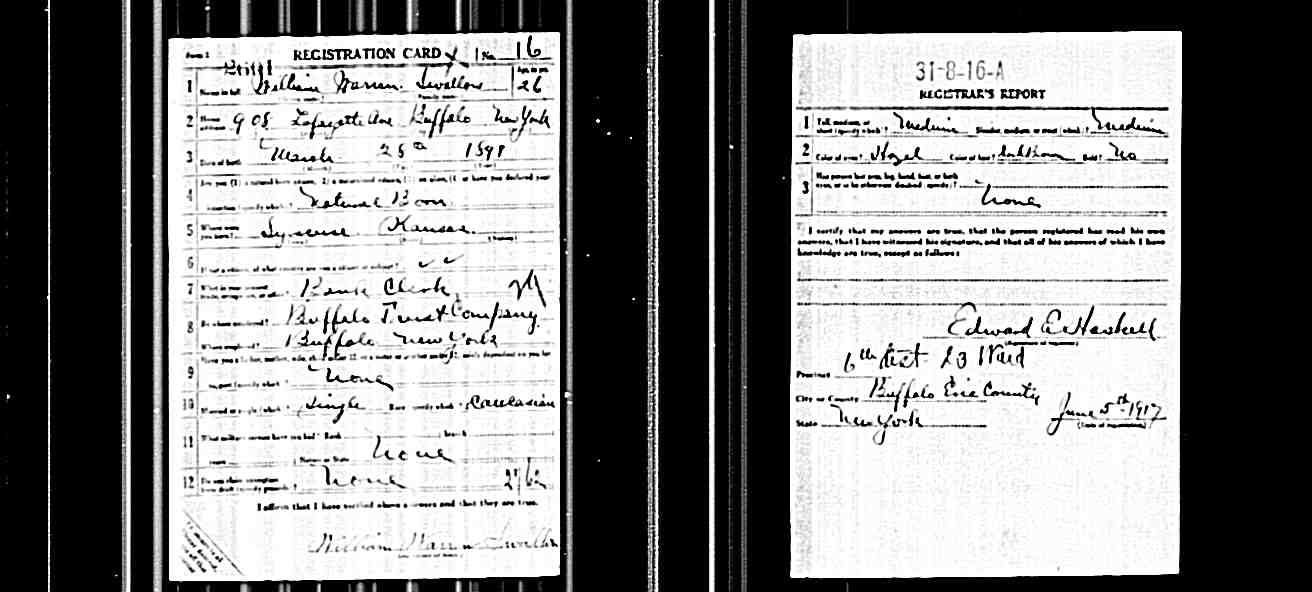 Form 1 REGISTRATION CARD No. 16
1 Name in full William Warren Swallow Age, in yrs. 26
2 Home address 908 Lafayette Ave Buffalo New York
3 Date of birth March 25th
4 Are you (1) a natural born citizen, (2) a naturalized citizen, (3) an alien, (4) or have you declared your
intention (specify which)? Natural Born
5 Where were you born? Syracuse Kansas
6 If not a citizen, of what country are you a citizen or subject?
7 What is your present trade, occupation, or office? Bank Clerk
8 By whom employed? Buffalo Trust Company
Where employed? Buffalo New York
9 Have you a father, mother, wife, child under 12, or a sister or brother under 12, solely dependent on you for
support (specify which)? None
10 Married or single (which)? Single Race (specify which)? Caucasian
11 What military service have you had? Rank branch
years Nation or State None
12 Do you claim exemption from draft (specify grounds)? None
I affirm that I have verified above answers and that they are true.
William Warren Swallow
31-8-16-A
REGISTRAR'S REPORT
1 Tall, medium, or short (specify which)? Medium Slender, medium, or stout (which)? Medium
2 Color of eyes? Hazel Color of hair? Dark Brown Bald? No
3 Has person lost arm, leg, hand, foot, or both
eyes, or is he otherwise disabled (specify)? None
I certify that my answers are true, that the person registered has read his own
answers, that I have witnessed his signature, and that all of his answers of which I have
knowledge are true, except as follows:
Edward E. Haskell
(Signature of registrar)
Precinct 6th Dist 23 Ward
City or County Buffalo Erie County
State New York June 5th-1917
(Date of registration)